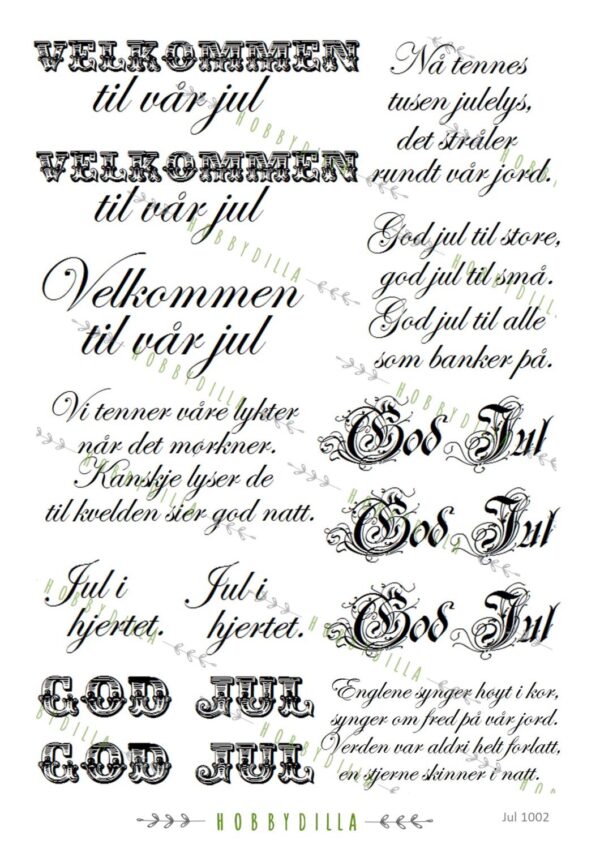 VELKOMMEN
til vår jul
VELKOMMEN
til vår jul
Velkommen
til vår jul
Vi tenner våre lykter
når det mørkner.
Kanskje lyser de
til kvelden sier god natt.
Jul i
hjertet.
Jul i
hjertet.
GOD JUL
GOD JUL
Nå tennes
tusen julelys,
det stråler
rundt vår jord.
God jul til store,
god jul til små.
God jul til alle
som banker på.
God Jul
God Jul
God Jul
Englene synger høyt i kor,
synger om fred på vår jord.
Verden var aldri helt forlatt,
en stjerne skinner i natt.
HOBBYDILLA
HOBBYDILLA
HOBBYDILLA
HOBBYDILLA
HOBBYDILLA
HOBBYDILLA
Jul 1002